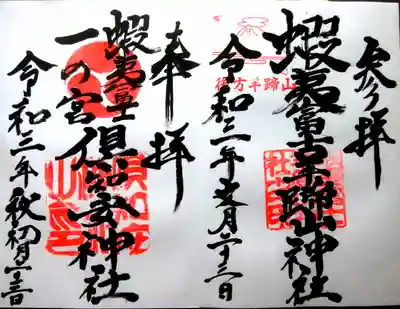 参拝
蝦夷富士羊蹄山神社
令和三年文月二十三日
後方羊蹄山
奉拝
蝦夷富士
一の宮倶知安神社
令和三年秋初月二十三日